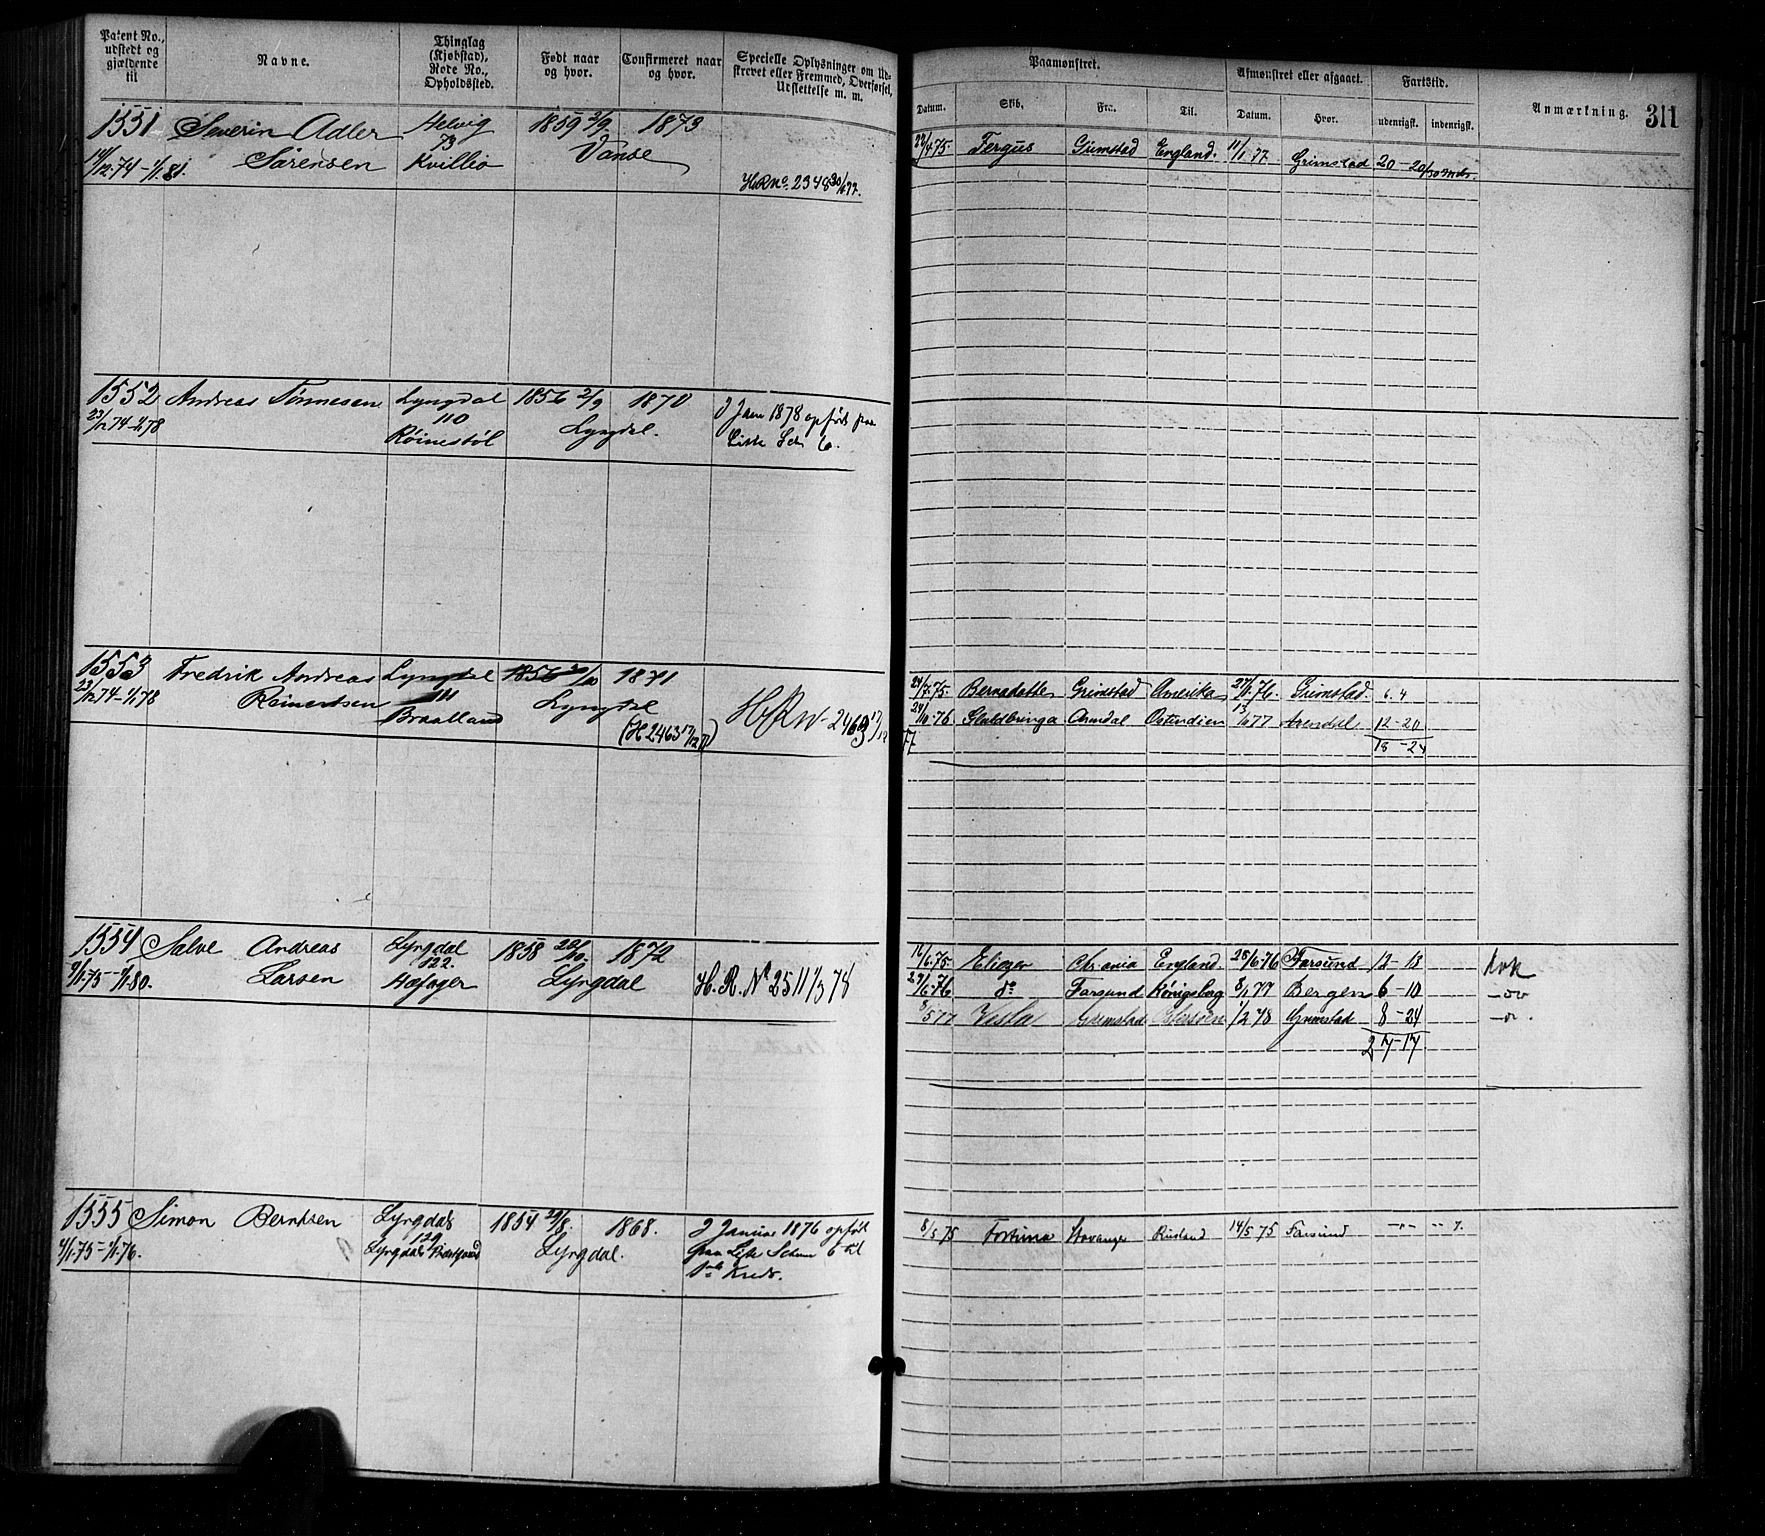 Patent No., udstedt og gjældende til
Navne.
Thinglag (Kjøbstad), Rode No., Opholdssted.
Født naar og hvor.
Confirmeret naar og hvor.
Specielle Oplysninger om Udskrevet eller Fremmed, Overførsel, Udslettelse m. m.
Paamønstret.
Datum.
Skib.
Fra:
Til.
Afmønstret eller afgaaet.
Datum.
Hvor.
Fartstid.
udenrigst.
indenrigst.
Anmærkning.
311
1551 Severin Adler Helvig 1859 2/9 1873
14/12 74 - 1/1 81. Sørensen 73 Kvilleo Vanse
HRNo. 2348 30/1 77.
22/4 75 Fergus Grimstad England. 11/1 77 Grimstad 20 - 20/30 Mdr.
1552 Andreas Tønnesen Lyngdal 1856 2/9 1870 d Janr 1878 opført paa
23/12 74 - 1/1 78 110 Lyngdal. Liste Litr 6.
Røinestøl
1553 Fredrik Andreas Lyngdal 1856 20/10 1871
23/12 74 - 1/1 78 Reinertsen 111 Lyngdal HRNo 2463 17/12
Braalland (H 2463 17/12 77) 77
24/7 75. Bernadotte Grimstad Amerika 27/9 76. Grimstad. 6 4
24/10 76 Guldbringa Arendal Ostindien 13/6 77 Arendal 12 - 20
18 - 24
1554 Salve Andreas Lyngdal 1858 20/10. 1872
4/1 75 - 1/1 80. Larsen 122. Lyngdal H. R. No 2511 1/3 78
Hæfager
16/6 75. Eliezer Chrania England. 28/6 76 Farsund 12 - 13 kok
29/6 76 do Farsund Königsberg 8/1 77 Bergen 6 - 10
8/5 77 Vesta Grimstad 1/2 78 Grimstad 8 - 24
27 - 17
1555 Simon Berntsen Lyngdal 1854 29/8. 1868. d Januar 1876 opført
4/1 75 - 1/1 76. 129 Lyngdal. paa Liste 6 til
Lyngdals Præstgaard
8/5 75 Fortuna Stavanger Rusland 14/5 75 Farsund - " - - " 7.